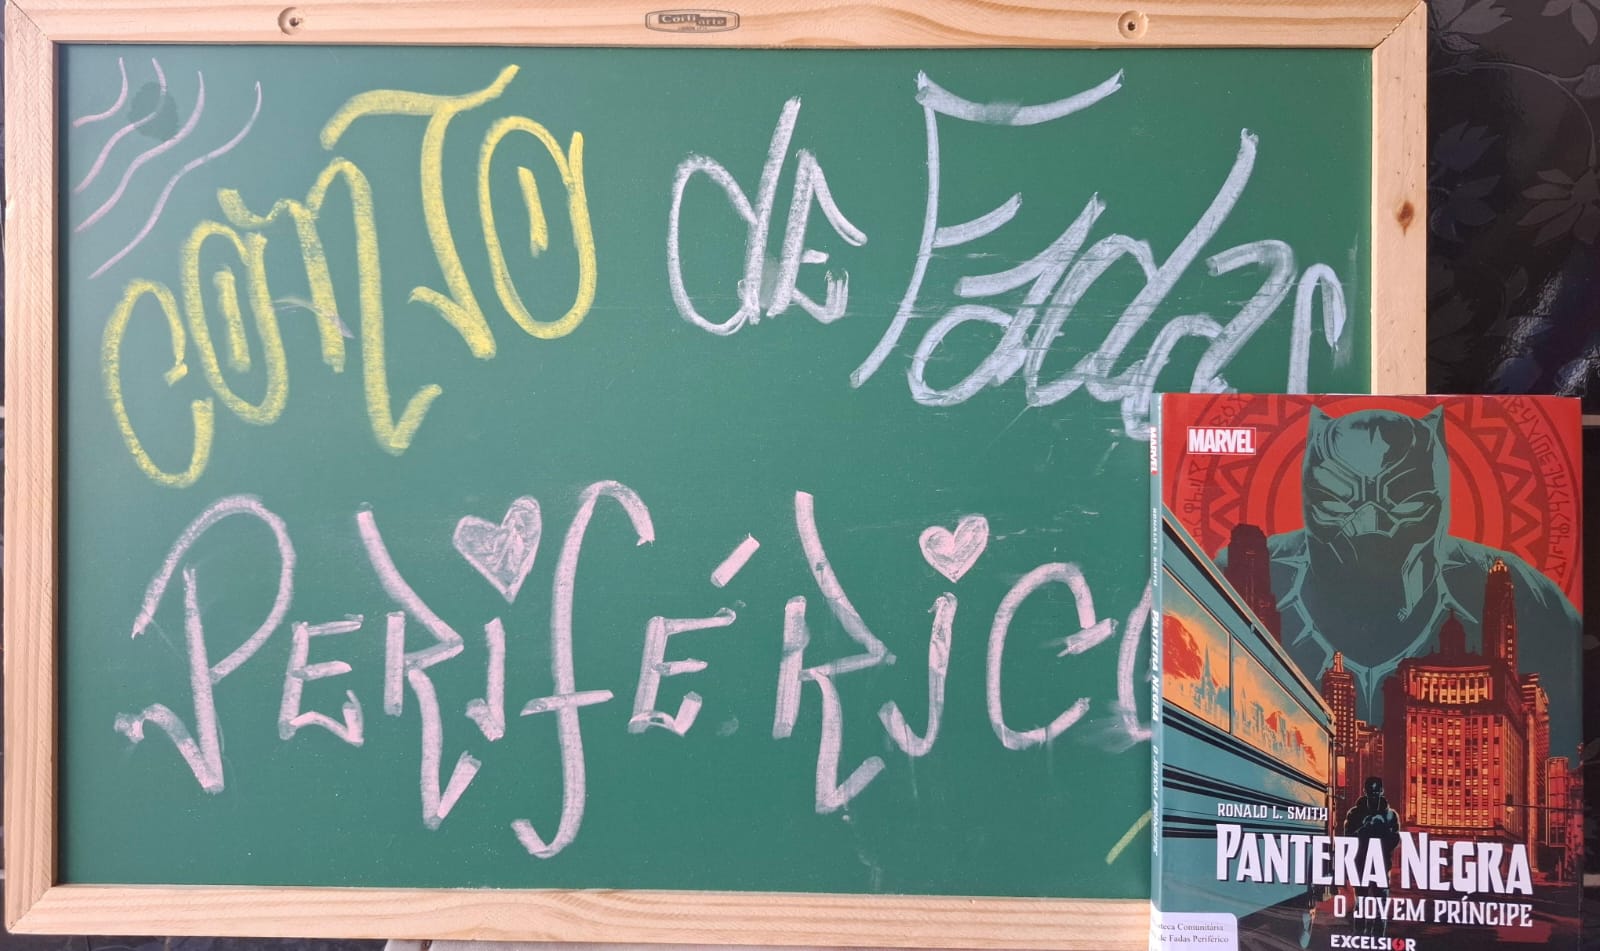 Corti arte
CONTO de Fadas
PERIFÉRICO
MARVEL
MARVEL RONALD L. SMITH PANTERA NEGRA O JOVEM PRÍNCIPE
RONALD L. SMITH
PANTERA NEGRA
O JOVEM PRÍNCIPE
EXCELSIOR
teca Comunitária
de Fadas Periférico